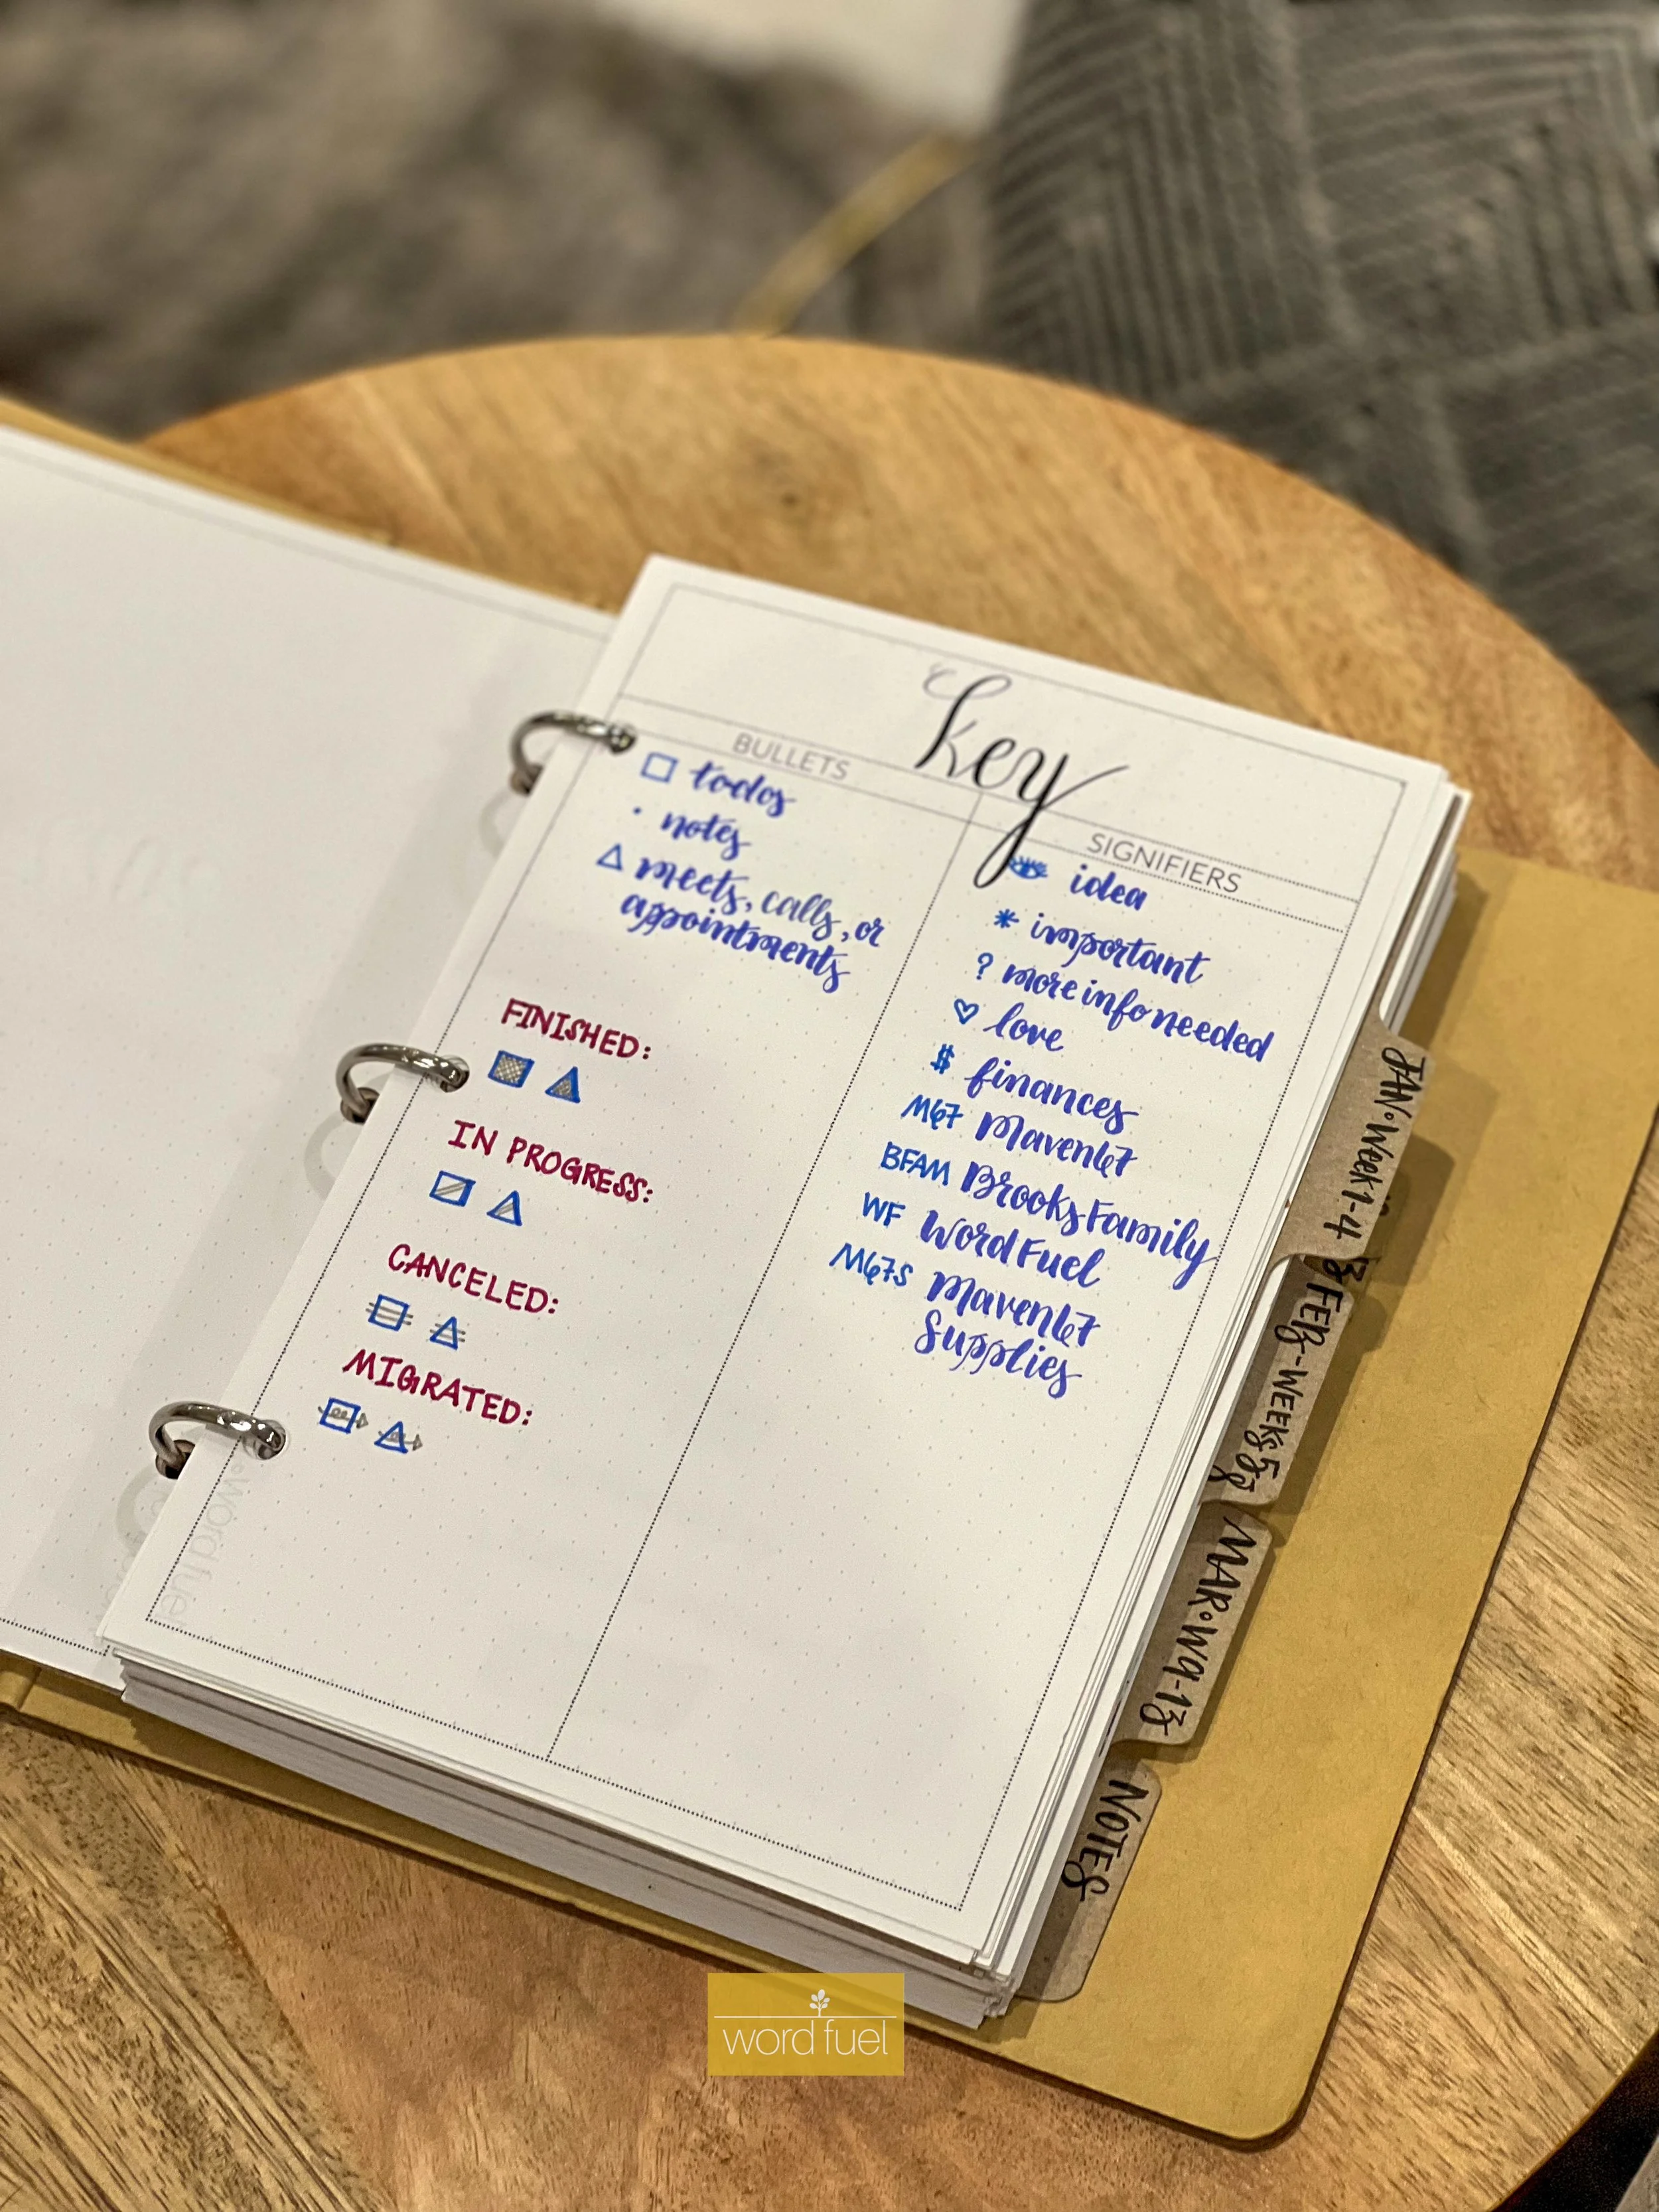 key
BULLETS
□ todos
· notes
△ meets, calls, or
appointments
FINISHED:
IN PROGRESS:
CANCELED:
MIGRATED:
SIGNIFIERS
idea
* important
? more info needed
♡ love
$ finances
M67 Maven67
BFAM Brooks Family
WF Word Fuel
M67S Maven67
Supplies
JAN • Week 1-4
FEB - WEEKS 5
MAR • W9-13
NOTES
word fuel
word fuel